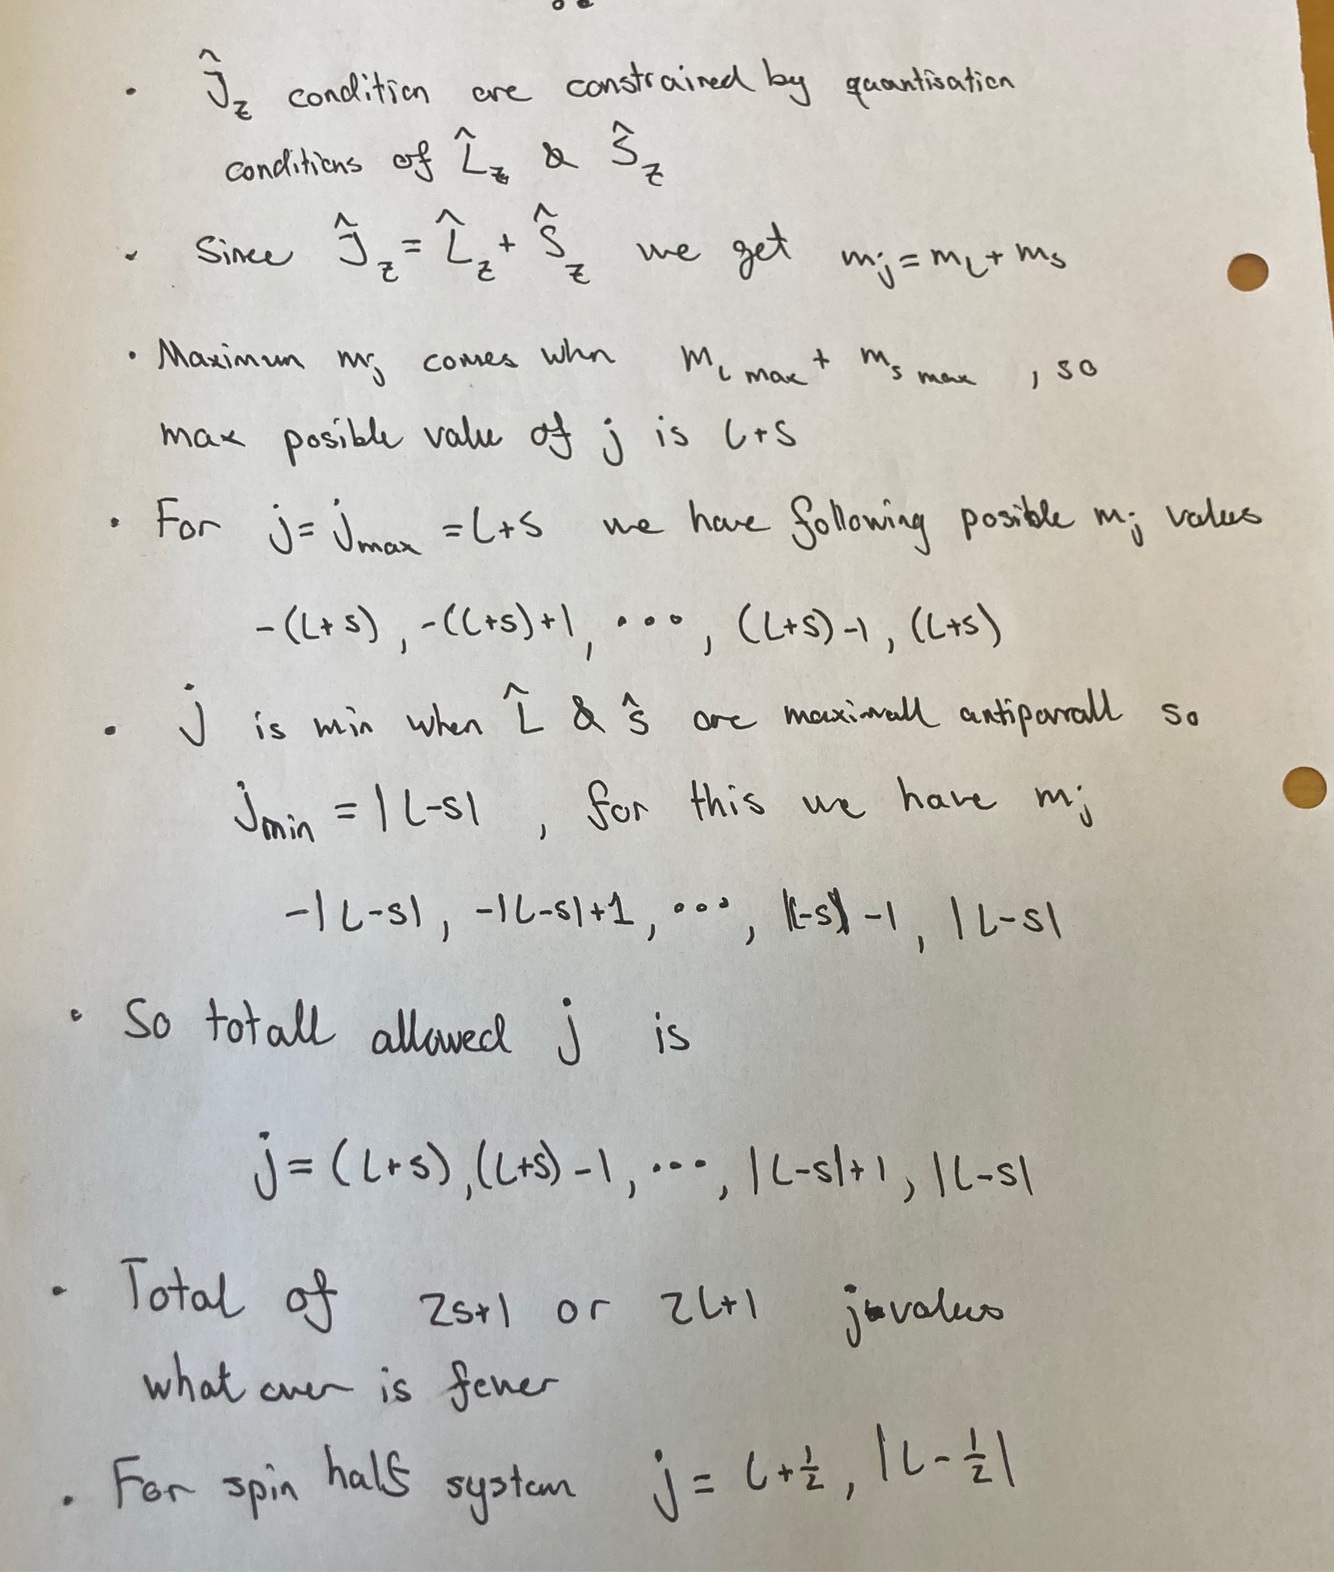 • Ĵz condition are constrained by quantisation
conditions of L̂z & Ŝz
• Since Ĵz = L̂z + Ŝz we get mj = mL + ms
• Maximum mj comes whn mL max + ms max , so
max posible value of j is L+S
• For j = jmax = L+S we have following posible mj values
-(L+S), -(L+S)+1, •••, (L+S)-1, (L+S)
• j is min when L̂ & Ŝ are maximall antiparall so
jmin = |L-S| , for this we have mj
-|L-S|, -|L-S|+1, •••, |L-S|-1, |L-S|
• So totall allowed j is
j = (L+S), (L+S)-1, •••, |L-S|+1, |L-S|
• Total of 2S+1 or 2L+1 j values
what ever is fewer
• For spin half system j = L+½, |L-½|